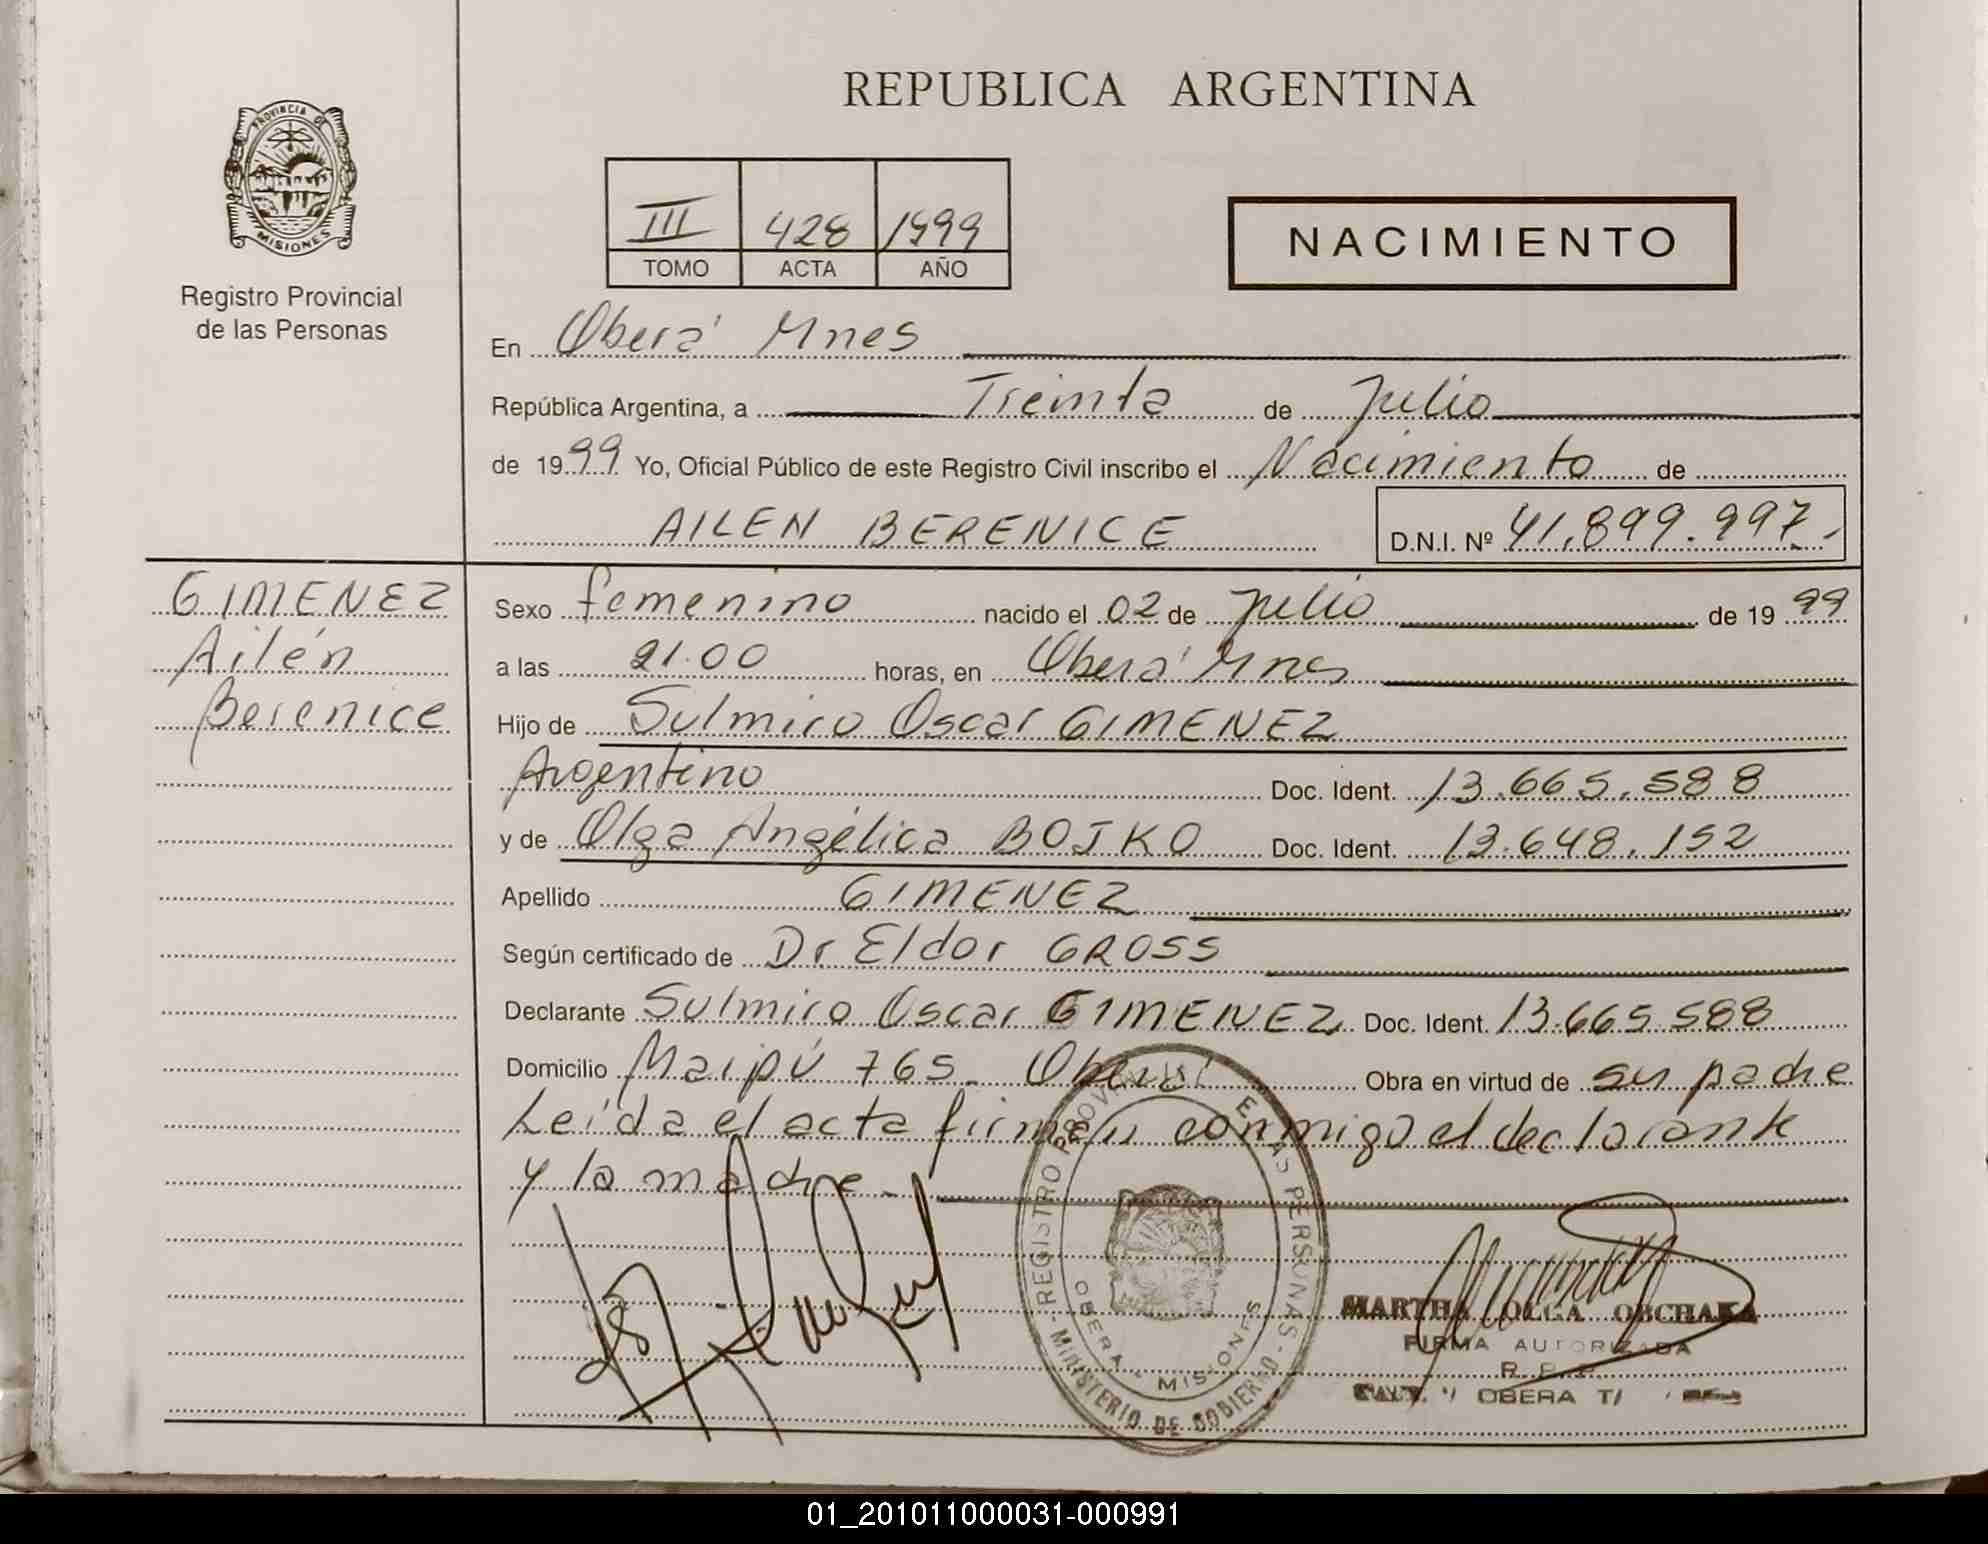 REPUBLICA ARGENTINA
PROVINCIA DE
MISIONES
Registro Provincial
de las Personas
III 428 1999
TOMO ACTA AÑO
NACIMIENTO
En Oberá Mnes
República Argentina, a Treinta de Julio
de 1999 Yo, Oficial Público de este Registro Civil inscribo el Nacimiento de
AILEN BERENICE D.N.I. Nº 41.899.997.-
GIMENEZ
Ailén
Berenice
Sexo femenino nacido el 02 de Julio de 1999
a las 21.00 horas, en Oberá Mnes
Hijo de Sulmiro Oscar GIMENEZ
Argentino Doc. Ident. 13.665.588
y de Olga Angélica BOJKO Doc. Ident. 13.648.152
Apellido GIMENEZ
Según certificado de Dr Eldor GROSS
Declarante Sulmiro Oscar GIMENEZ Doc. Ident. 13.665.588
Domicilio Maipú 765. Oberá Obra en virtud de su padre
Leída el acta firman conmigo el declarante
y la madre.-
REGISTRO PROVINCIAL DE LAS PERSONAS - MINISTERIO DE GOBIERNO -
OBERA - MISIONES
MARTHA OLGA OBCHAKA
FIRMA AUTORIZADA
OBERA
01_201011000031-000991